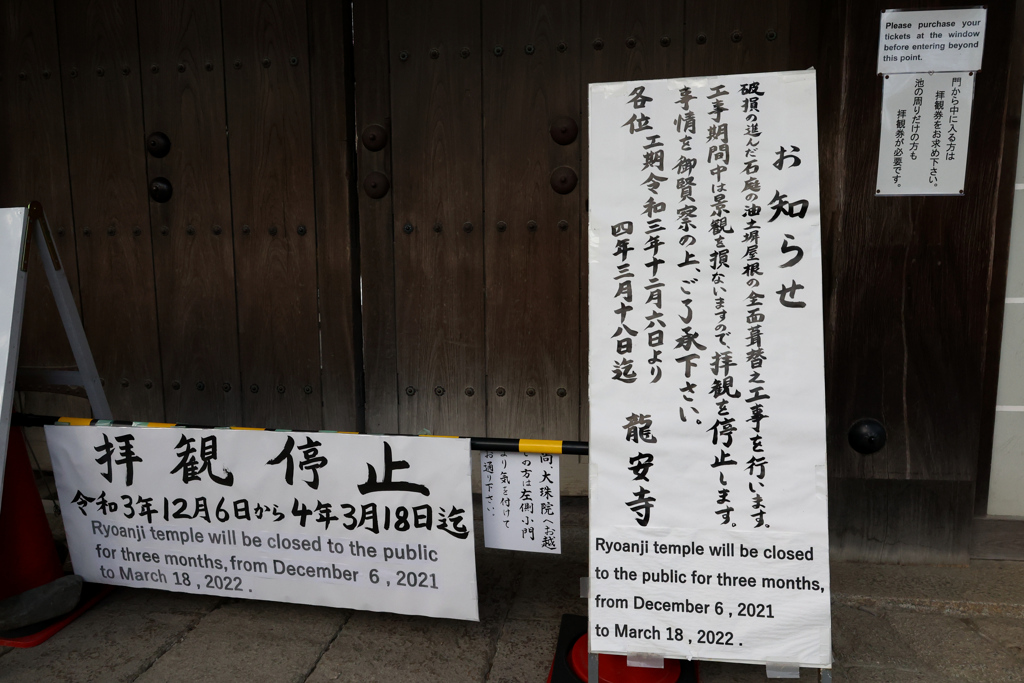 拝観停止
令和3年12月6日から4年3月18日迄
Ryoanji temple will be closed to the public
for three months, from December 6 , 2021
to March 18 , 2022 .
大珠院へお越
の方は左側小門
より気を付けて
お通り下さい。
お知らせ
破損の進んだ石庭の油土塀屋根の全面葺替之工事を行います。
工事期間中は景観を損ないますので、拝観を停止します。
事情を御賢察の上、ご了承下さい。
工期令和三年十二月六日より
四年三月十八日迄
各位
龍安寺
Ryoanji temple will be closed
to the public for three months,
from December 6 , 2021
to March 18 , 2022 .
Please purchase your
tickets at the window
before entering beyond
this point.
門から中に入る方は
拝観券をお求め下さい。
池の周りだけの方も
拝観券が必要です。